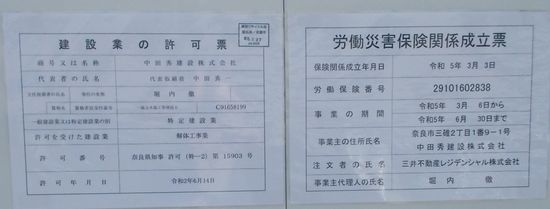 建設業の許可票
商号又は名称 中田秀建設株式会社
代表者の氏名 代表取締役 中田秀一
主任技術者の氏名 専任の有無 堀内 徹
資格名 資格者証交付番号 C01658199
一般建設業又は特定建設業の別 特定建設業
許可を受けた建設業 解体工事業
許可番号 奈良県知事 許可(特ー2)第 15903 号
許可年月日 令和2年6月14日
労働災害保険関係成立票
保険関係成立年月日 令和 5年 3月 3日
労働保険番号 29101602838
事業の期間 令和5年 3月 6日から
令和5年 6月 30日まで
事業主の住所氏名 奈良市三碓2丁目1番9ー1号
中田秀建設株式会社
注文者の氏名 三井不動産レジデンシャル株式会社
事業主代理人の氏名 堀内 徹